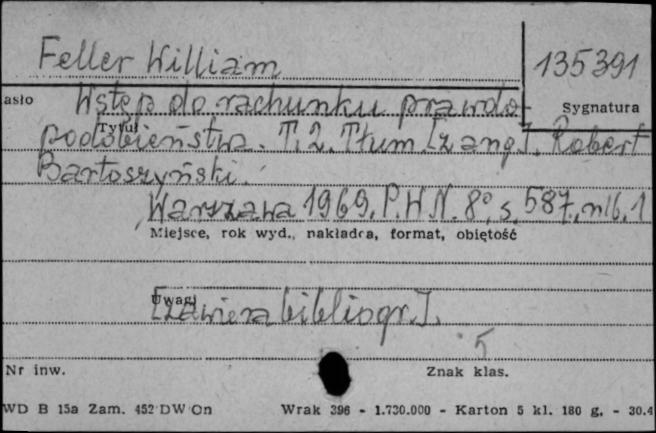 Feller William
135391
asło
Wstęp do rachunku prawdo-
Sygnatura
Tytuł
podobieństwa. T. 2. Tłum. [z ang.]. Robert
Bartoszyński.
Warszawa 1969. P.W.N. 8°, s. 587, nlb. 1
Miejsce, rok wyd., nakładca, format, objętość
Uwagi
[Zawiera bibliogr.].
5
Nr inw.
Znak klas.
WD B 15a Zam. 452 DW On
Wrak 396 - 1.730.000 - Karton 5 kl. 180 g. - 30.4